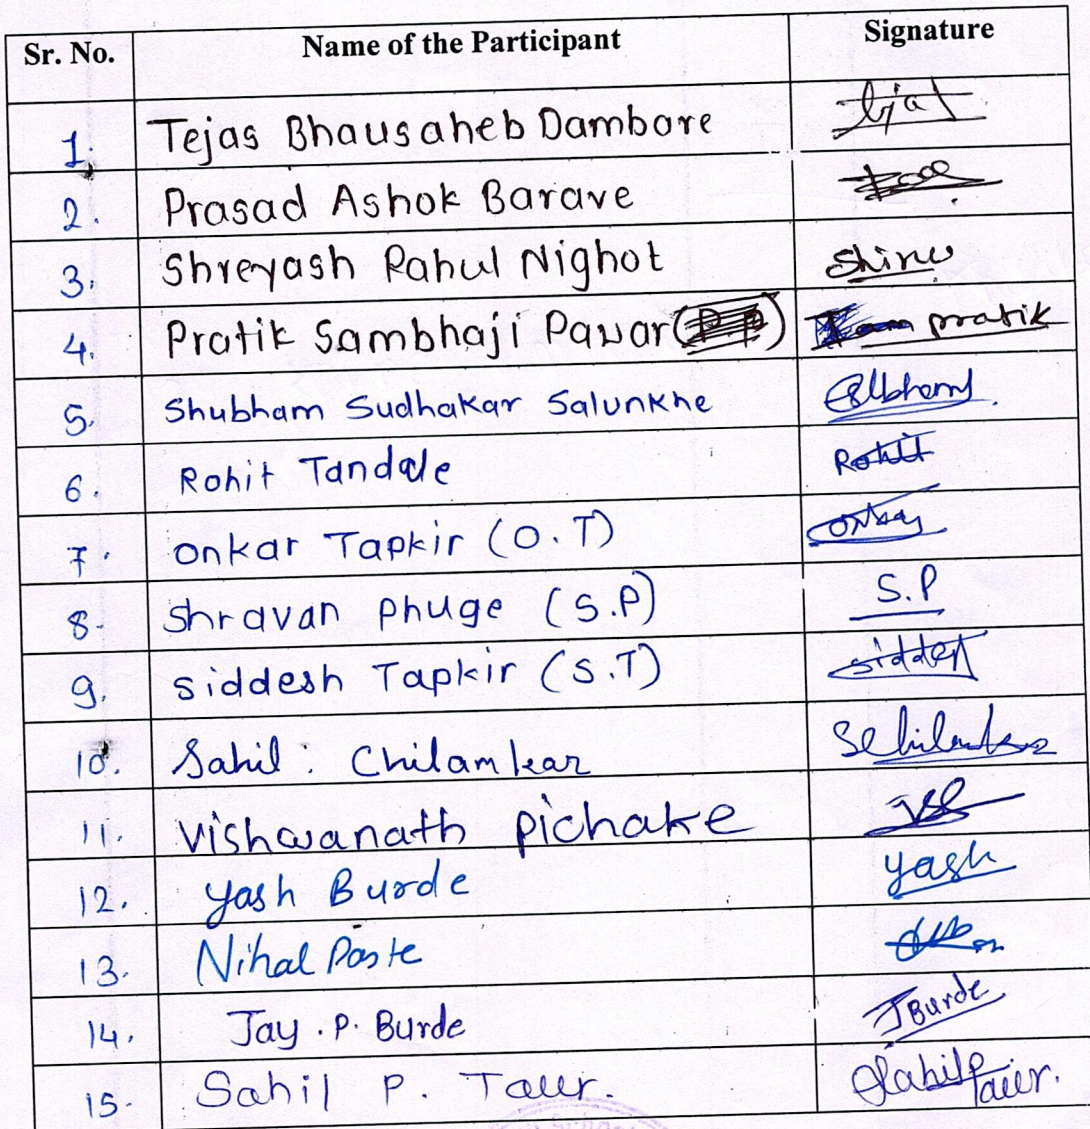 Sr. No. Name of the Participant Signature
1. Tejas Bhausaheb Dambare
2. Prasad Ashok Barave
3. Shreyash Rahul Nighot
4. Pratik Sambhaji Pawar pratik
5. Shubham Sudhakar Salunkhe
6. Rohit Tandale Rohit
7. onkar Tapkir (O.T) onkar
8. Shravan Phuge (S.P) S.P
9. Siddesh Tapkir (S.T) siddesh
10. Sahil : Chilamkar
11. Vishwanath pichake
12. Yash Burde yash
13. Nihal Paste
14. Jay . P. Burde JBurde
15. Sahil P. Taur.